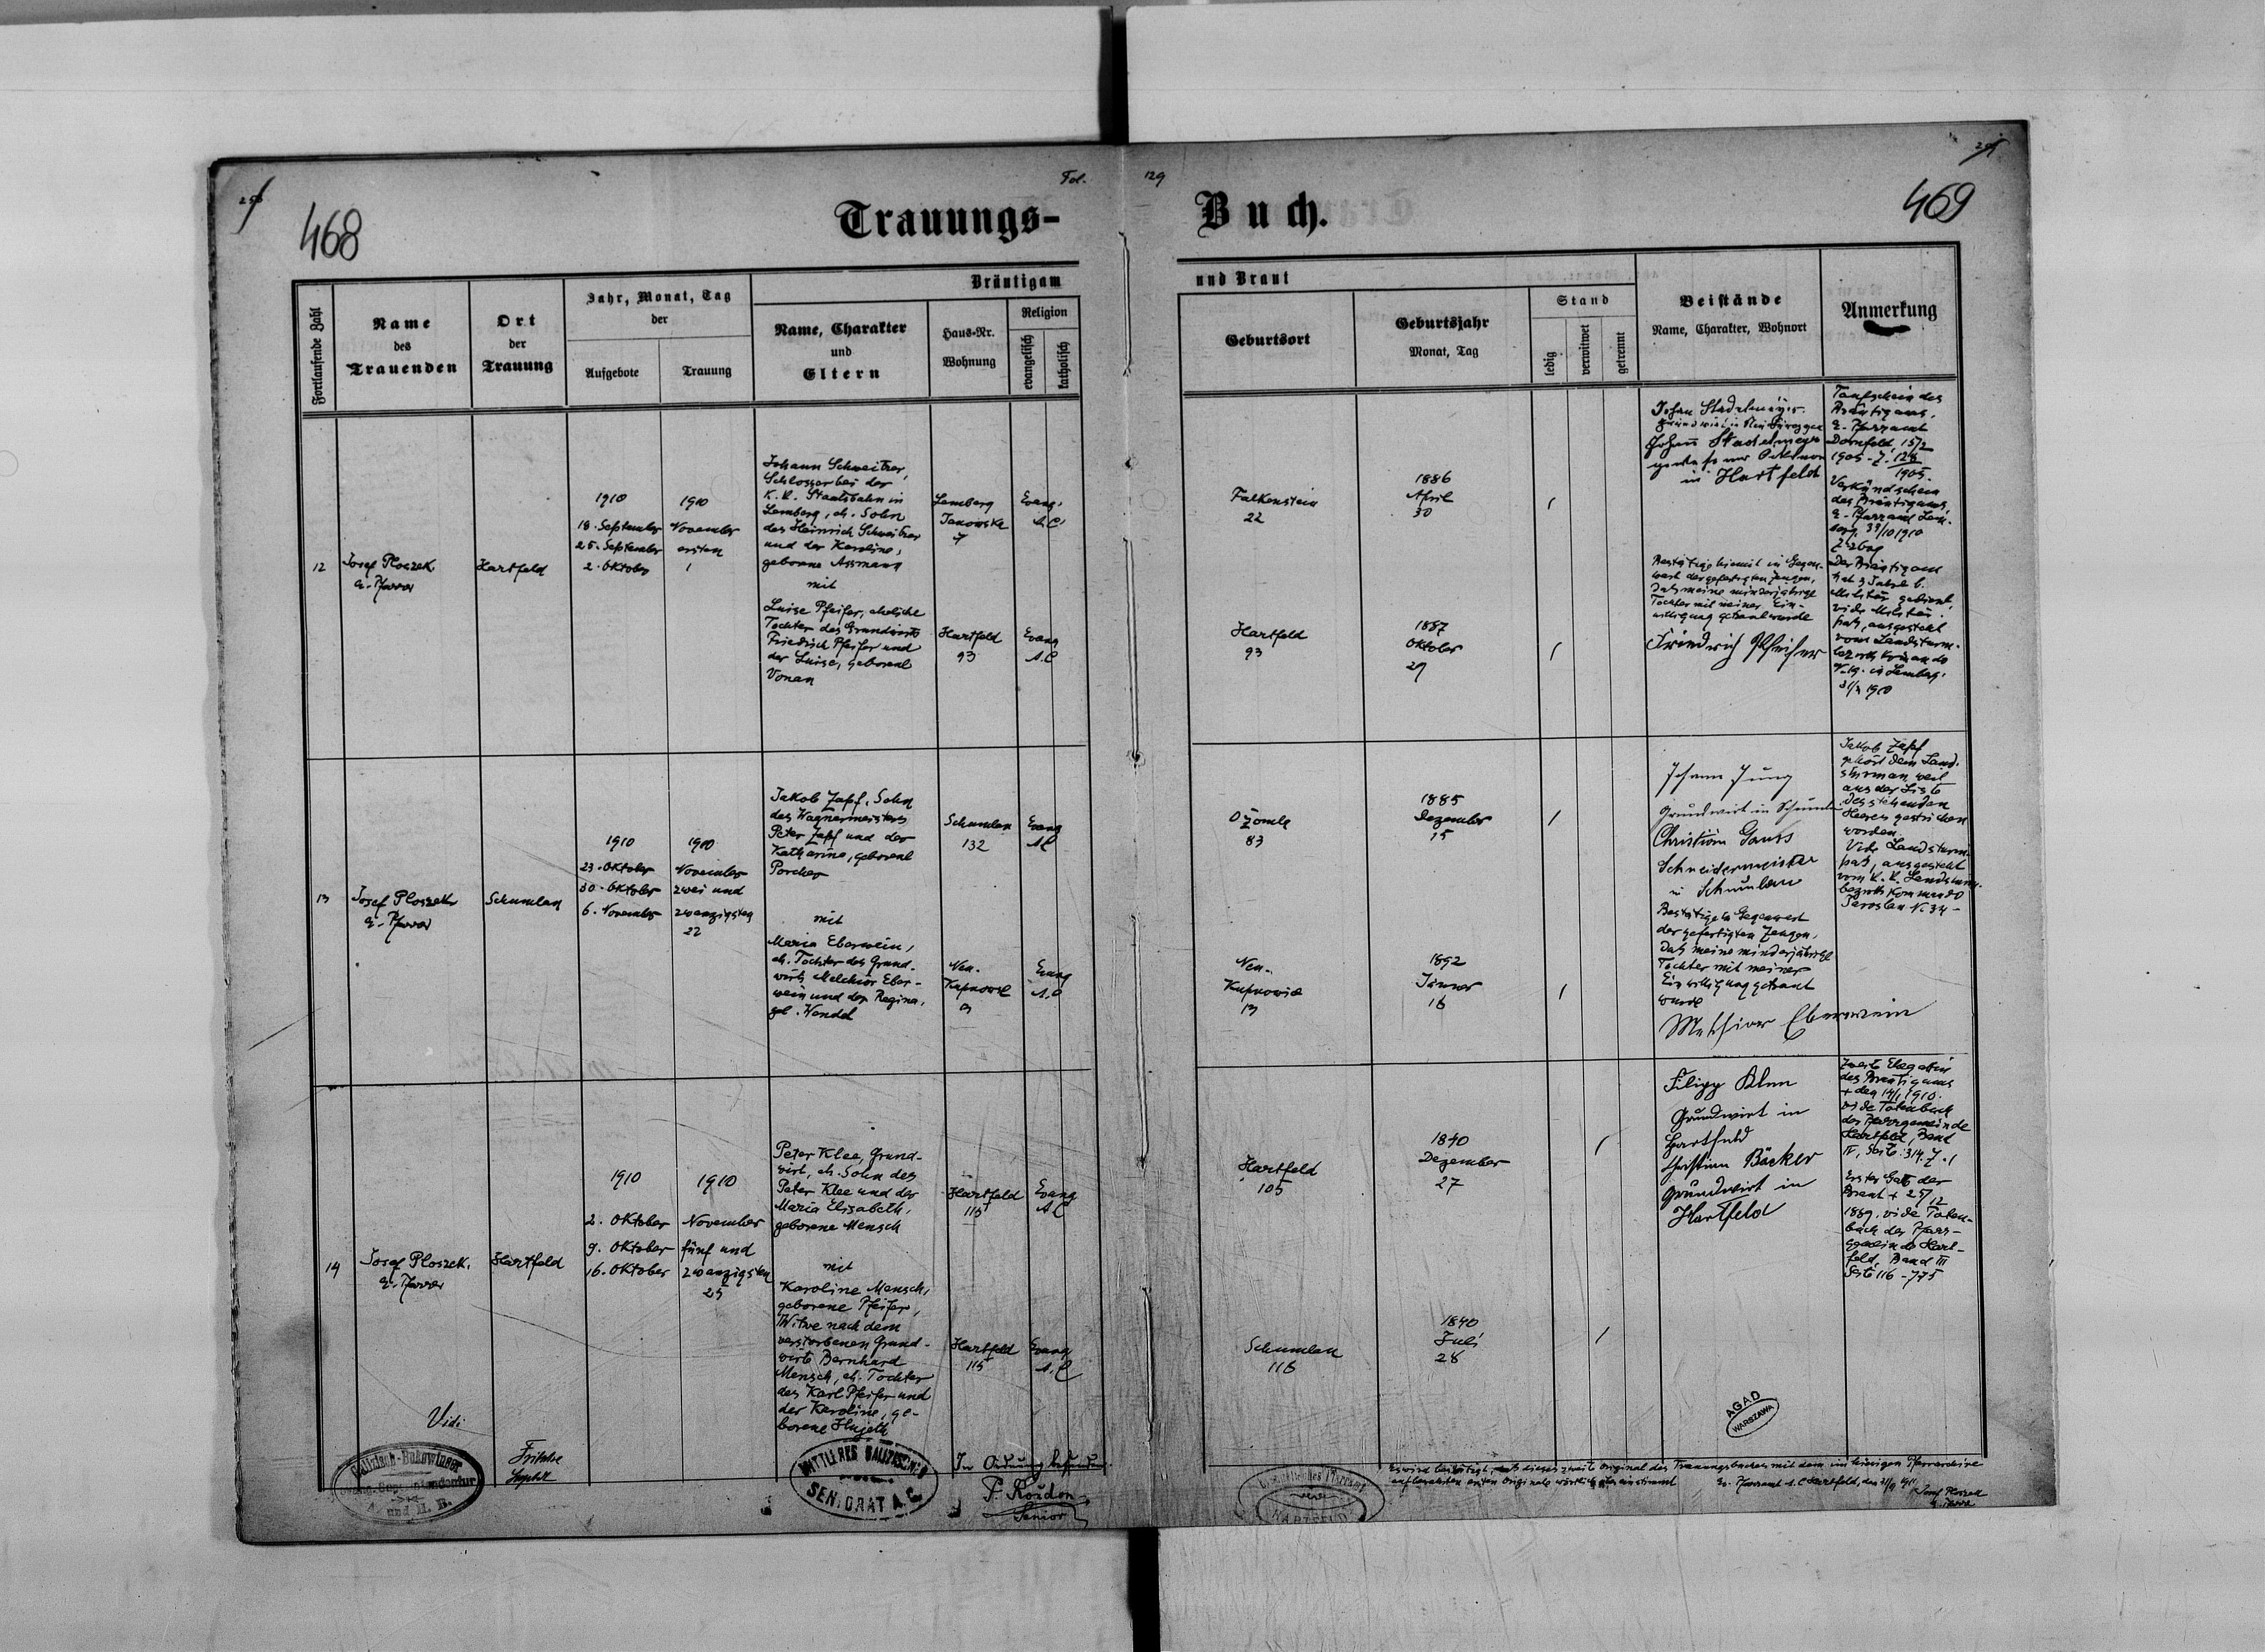 468
Fol.
129
469
Trauungs-
Buch.
Fortlaufende Zahl
Name
des
Trauenden
Ort
der
Trauung
Jahr, Monat, Tag
der
Aufgebote
Trauung
Bräutigam
und Braut
Name, Charakter
und
Eltern
Haus-Nr.
Wohnung
Religion
evangelisch
katholisch
Geburtsort
Geburtsjahr
Monat, Tag
Stand
ledig
verwitwet
getrennt
Beistände
Name, Charakter, Wohnort
Anmerkung
12
Josef Ploszek
e. Pfarrer
Hartfeld
1910
18. September
25. September
2. Oktober
1910
November
ersten
1
Johann Schweitzer,
Schlosser bei der
K. K. Staatsbahn in
Lemberg, eh. Sohn
des Heinrich Schweitzer
und der Karoline,
geborene Assmann
mit
Luise Pfeifer, eheliche
Tochter des Grundwirts
Friedrich Pfeifer und
der Luise, geborene
Vonau
Lemberg
Janowska
7
Evang.
A.C.
Hartfeld
93
Evang
A.C
Falkenstein
22
1886
April
30
Hartfeld
93
1887
Oktober
29
Johan Stadelmeyer
Grundwirt in
Johann Stadelmeyer
in Hartfeld
Bestätige hiemit in Gegen-
wart der gefertigten Zeugen,
daß meine minderjährige
Tochter mit meiner Ein-
willigung getraut wurde
Friedrich Pfeifer
Taufschein des
Bräutigams,
e. Pfarramt
Dornfeld, 15/2
1905. Z. 128
1905.
Verkündschein
des Bräutigams,
e. Pfarramt Lem-
berg,
Der Bräutigam
hat 3 Jahre b.
Militär gedient,
vide Militär-
paß, ausgestellt
vom Landsturm-
bezirkskomando
in Lemberg,
1910
13
Josef Ploszek
e. Pfarrer
Schumlau
1910
23. Oktober
30. Oktober
6. November
1910
November
zwei und
zwanzigsten
22
Jakob Zapf, Sohn
des Wagnermeisters
Peter Zapf und der
Katharina, geborene
Porcher
mit
Maria Eberwein,
eh. Tochter des Grund-
wirts Melchior Eber-
wein und der Regina,
geb. Wendel
Schumlau
132
Evang
A.C
Neu-
Kupnowice
Evang
A.C
Ożomla
83
1885
Dezember
15
Neu-
Kupnowice
13
1892
Jänner
16
Johann Jung
Grundwirt in Schumlau
Christian Gauss
Schneidermeister
in Schumlau
Bestätige in Gegenwart
der gefertigten Zeugen,
daß meine minderjährige
Tochter mit meiner
Einwilligung getraut
wurde
Melhior Eberwein
Jakob Zapf
gehört dem Land-
sturm an, weil
aus der Liste
des stehenden
Heeres gestrichen
worden.
Vide Landsturm-
paß, ausgestellt
vom K. K. Landsturm-
bezirkskommando
Jaroslau N. 34-
14
Josef Ploszek.
e. Pfarrer
Hartfeld
1910
2. Oktober
9. Oktober
16. Oktober
1910
November
fünf und
zwanzigsten
25
Peter Klee, Grund-
wirt, eh. Sohn des
Peter Klee und der
Maria Elisabeth,
geborene Mensch
mit
Karoline Mensch,
geborene Pfeifer,
Witwe nach dem
verstorbenen Grund-
wirte Bernhard
Mensch, eh. Tochter
des Karl Pfeifer und
der Karoline, ge-
borene
Hartfeld
115
Evang
A.C
Hartfeld
115
Evang
A.C
Hartfeld
105
1840
Dezember
27
Schumlau
116
1840
Juli
28
Filipp Klee
Grundwirt in
Hartfeld
Christian Bäcker
Grundwirt in
Hartfeld
Zweite Ehegattin
des Bräutigams
+ den 14/1 1910.
vide Totenbuch
der Pfarrgemeinde
Hartfeld, Band
IV, Seite 314. Z. 1
Erster Gatte der
Braut + 25/12
1889, vide Toten-
buch der Pfarr-
gemeinde Hart-
feld, Band III
Seite 116 - 775
Vidi
Fritsche
Galizisch-Bukowinaer
evang. Superintendentur
A. und H. B.
MITTLERES GALIZISCHES
SENIORAT A.C.
In Ordnung befunden.
Senior
AGAD
WARSZAWA
HARTFELD
Es wird bestätigt, daß dieses zweite Original des Trauungsbuches mit dem im hiesigen Pfarrarchive
aufbewahrten ersten Originale wörtlich übereinstimmt
Ev. Pfarramt A.C Hartfeld, den
Josef Ploszek
e. Pfarrer